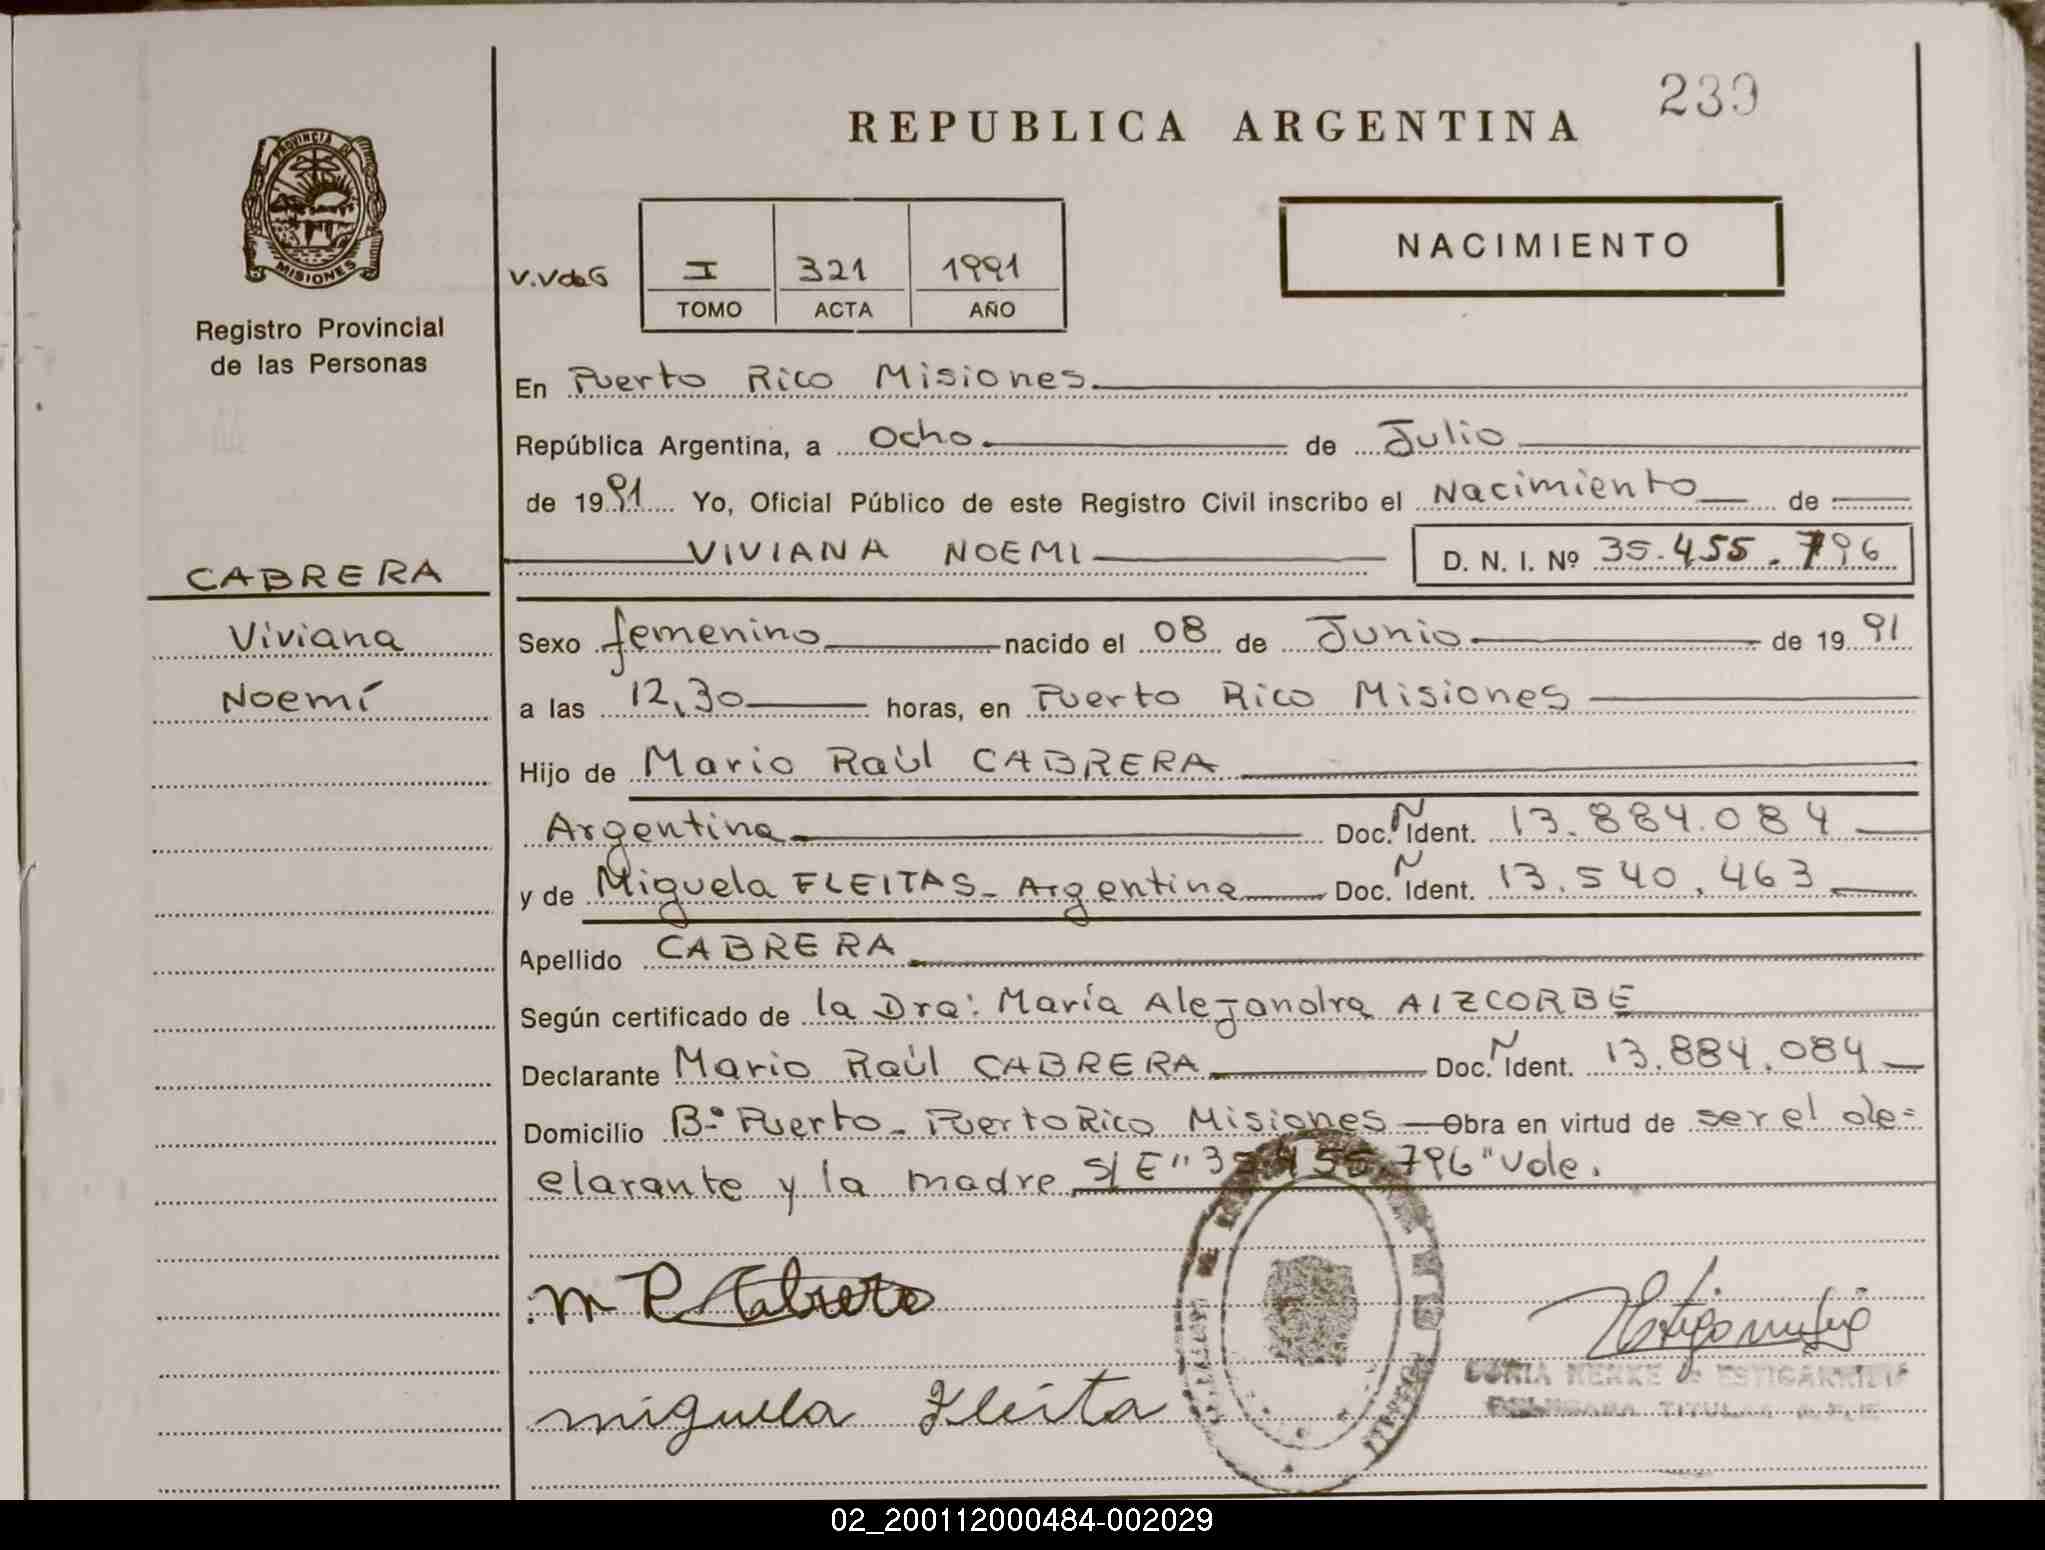 239
REPUBLICA ARGENTINA
PROVINCIA DE
MISIONES
Registro Provincial
de las Personas
NACIMIENTO
V.VdeG
I 321 1991
TOMO ACTA AÑO
En Puerto Rico Misiones.
República Argentina, a Ocho. de Julio
de 1991 Yo, Oficial Público de este Registro Civil inscribo el Nacimiento de
VIVIANA NOEMI D. N. I. Nº 35.455.796
CABRERA
Viviana
Noemí
Sexo femenino nacido el 08 de Junio de 1991
a las 12,30 horas, en Puerto Rico Misiones
Hijo de Mario Raúl CABRERA
Argentina Doc. N Ident. 13.884.084
y de Miguela FLEITAS- Argentina Doc. N Ident. 13.540.463
Apellido CABRERA
Según certificado de la Dra: María Alejandra AIZCORBE
Declarante Mario Raúl CABRERA Doc. N Ident. 13.884.084
Domicilio Bº Puerto- Puerto Rico Misiones Obra en virtud de ser el de=
clarante y la madre S/E "35.455.796" Vale.
M R Cabrera
Miguela Fleita
ESTIGARRIBIA
TITULAR
02_200112000484-002029